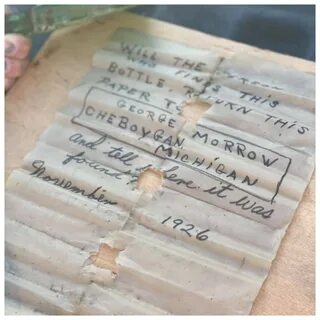 WILL THE PERSON
WHO FINDS THIS
BOTTLE, RETURN THIS
PAPER TO
GEORGE MORROW
CHEBOYGAN
MICHIGAN
and tell where it was
found
November
1926